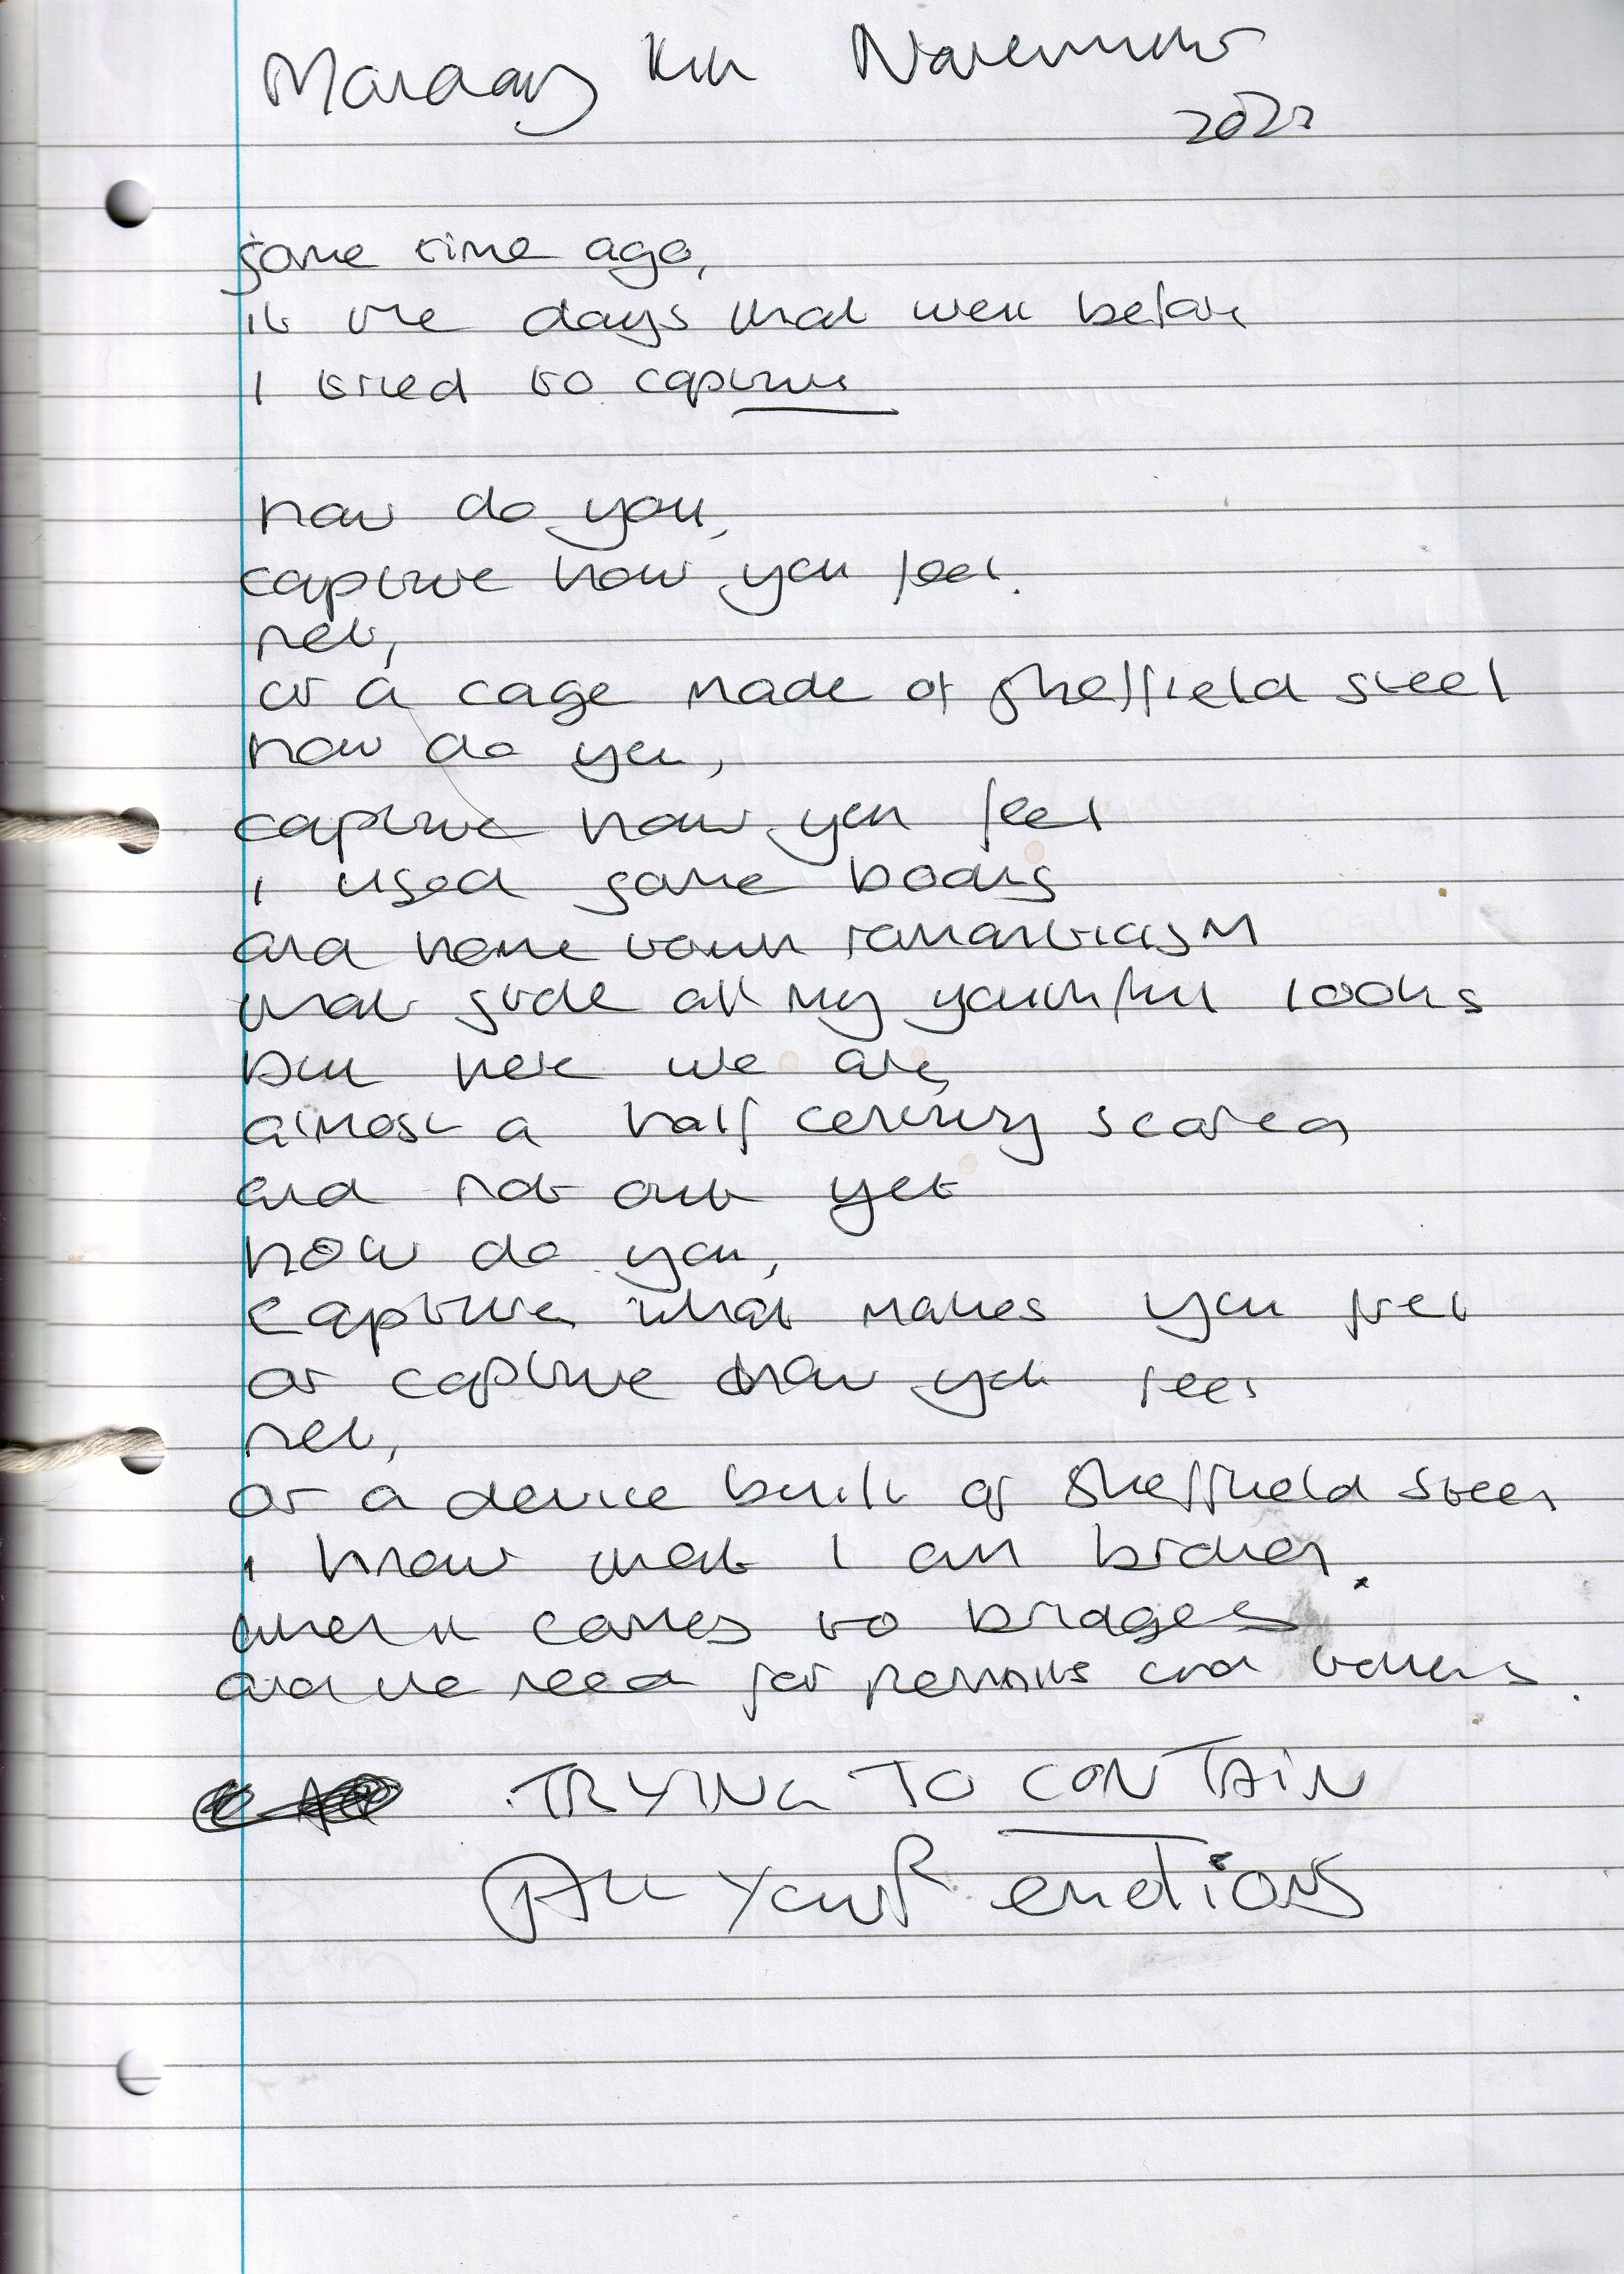 Monday November
2022
some time ago,
in the days that went before
I tried to capture
how do you,
capture how you feel.
net,
or a cage made of Sheffield steel
how do you,
capture how you feel
I used some books
and home romanticism
that stole all my youthful looks
but here we are,
almost a half century scored
and not out yet
how do you,
capture what makes you feel
or capture how you feel
net,
or a device built of Sheffield steel
I know that I am broken.
when it comes to bridges
and the need for permits and tokens.
TRYING TO CONTAIN
All your emotions